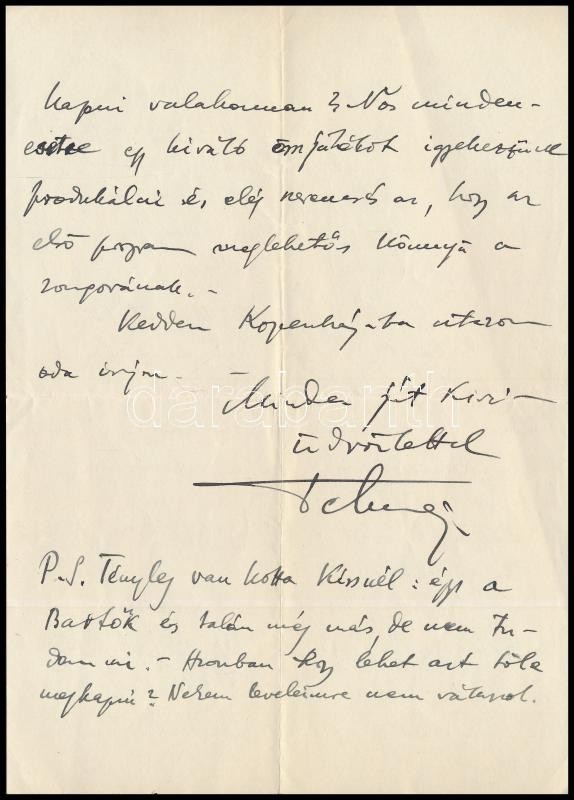 kapni valahonnan? Nos minden-
esetre egy kiváló összjátékot igyekszünk
produkálni és elég szerencsés az, hogy az
első program meglehetős könnyű a
zongorának. –
Kedden Kopenhágába utazom
oda írjon. –
Minden jót kíván
üdvözlettel
Telmányi
P.S. Tényleg van kotta Kissnél: épp a
Bartók és talán még más, de nem tu-
dom mi. – Azonban hogy lehet azt tőle
megkapni? Nekem leveleimre nem válaszol.
darabanth